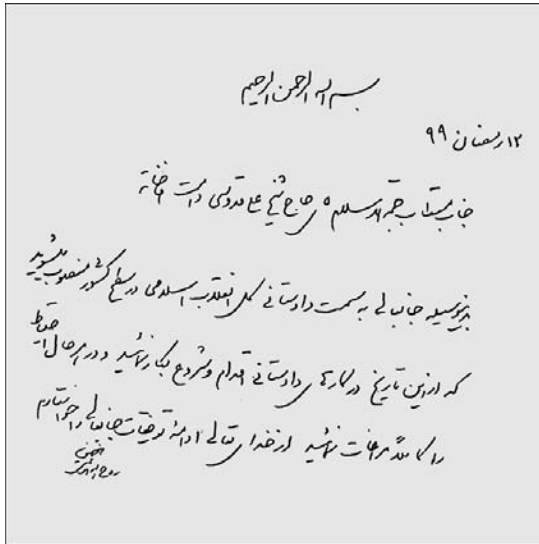 بسم الله الرحمن الرحیم
۱۲ رمضان ۹۹
جناب مستطاب حجةالاسلام آقای حاج شیخ علی قدوسی دامت افاضاته
بدینوسیله جنابعالی به سمت دادستانی کل انقلاب اسلامی در سطح کشور منصوب میشوید
که از این تاریخ در کارهای دادستانی اقدام و شروع بکار نمائید و در هر حال احتیاط
را کاملاً مراعات نمائید از خدای تعالی ادامۀ توفیقات جنابعالی را خواستارم
روح الله الموسوی الخمینی